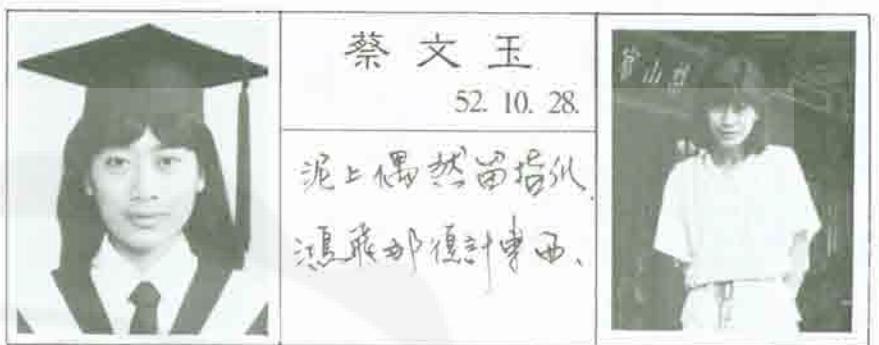 蔡文玉
52. 10. 28.
泥上偶然留指爪
鴻飛那復計東西、